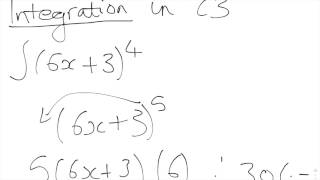 Integration in C3
∫(6x+3)^4
(6x+3)^5
5(6x+3) (6) ∴ 30(